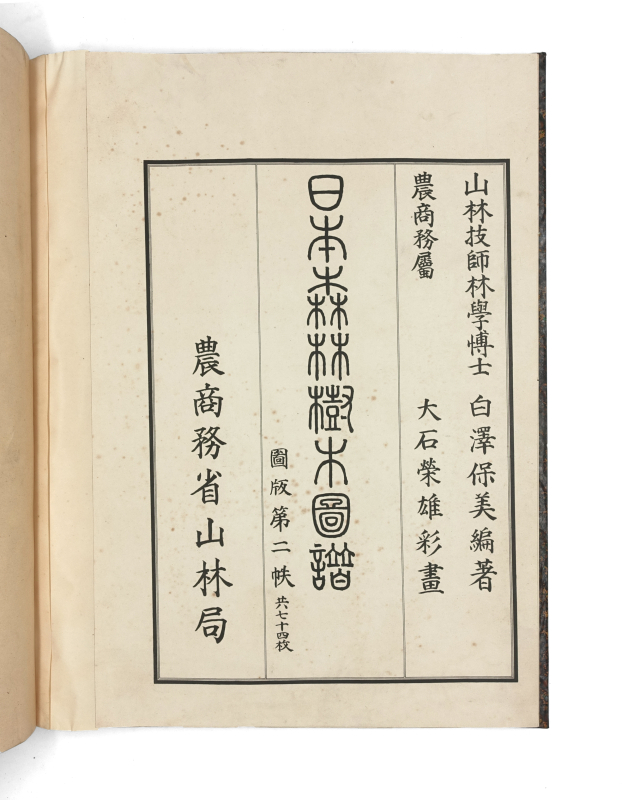 山林技師林學愽士 白澤保美編著
農商務屬 大石榮雄彩畫
日本森林樹木圖譜
圖版第二帙 共七十四枚
農商務省山林局